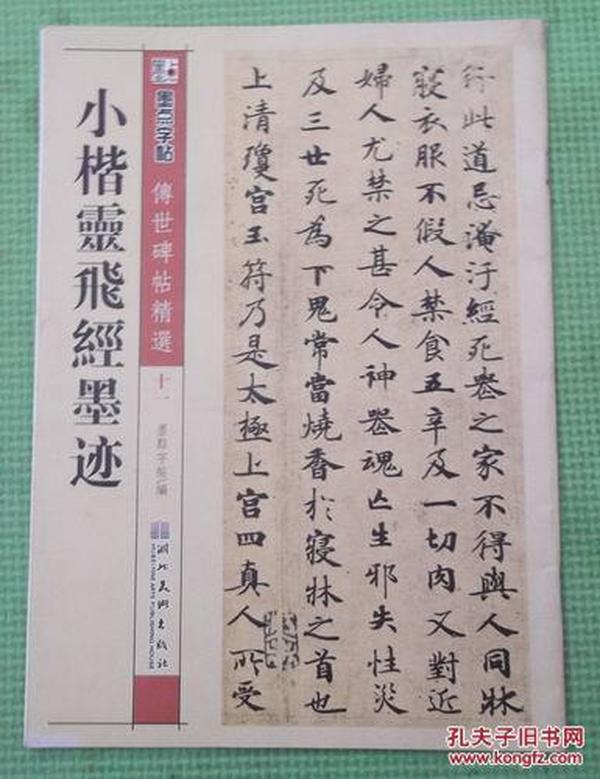 行此道忌淹汙經死丧之家不得與人同牀
寢衣服不假人禁食五辛及一切肉又對近
婦人尤禁之甚令人神丧魂亡生邪失性灾
及三世死為下鬼常當燒香於寢牀之首也
上清瓊宫玉符乃是太極上宫四真人所受
墨点字帖
傳世碑帖精選
十一
墨點字帖編
湖北美術出版社
HUBEI FINE ARTS PUBLISHING HOUSE
小楷靈飛經墨迹
孔夫子旧书网